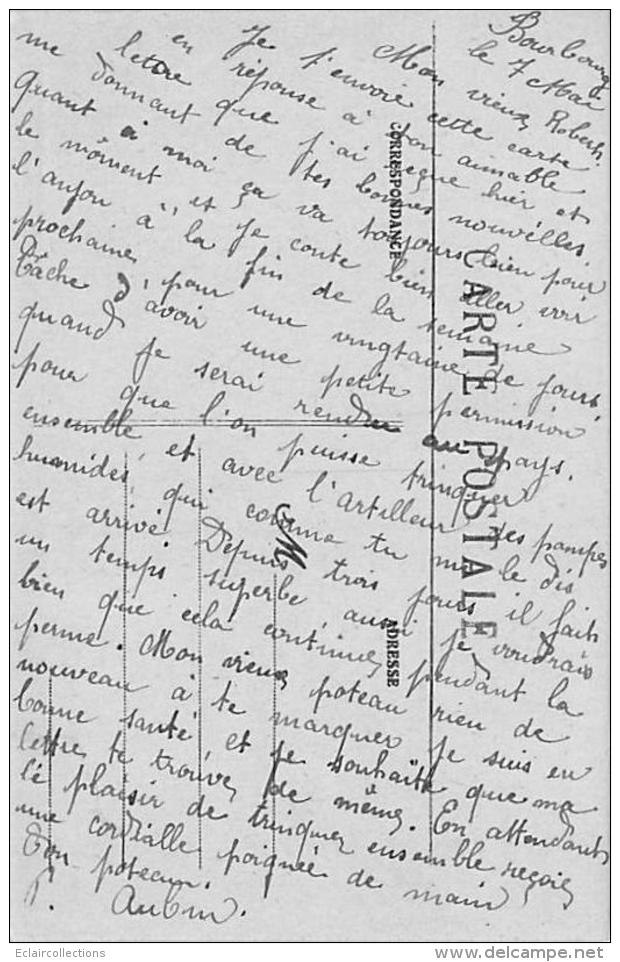 Bourbourg
le 7 Mai
Mon vieux Robert.
Je t'envoie cette carte
en réponse à ton aimable
lettre que j'ai reçue hier et
me donnant de tes bonnes nouvelles.
quant à moi ça va toujours bien pour
le môment et je conte bien aller voir
l'anjou à la fin de la semaine
prochaine, pour une vingtaine de jours,
Tâche d'avoir une petite permission
quand je serai rendu au pays.
pour que l'on puisse trinquer
ensemble, et avec l'artilleur des pampes
humides, qui comme tu me le dis
est arrivé. Depuis trois jours il fait
un temps superbe, aussi je voudrais
bien que cela continue, pendant la
perme. Mon vieux poteau rien de
nouveau à te marquer je suis en
bonne santé et je souhaite que ma
lettre te trouve, de même. En attendant
le plaisir de trinquer ensemble reçois
une cordialle poignée de main
Ton poteau.
P. Aubin.
CORRESPONDANCE
CARTE POSTALE
M
ADRESSE
Eclaircollections
www.delcampe.net